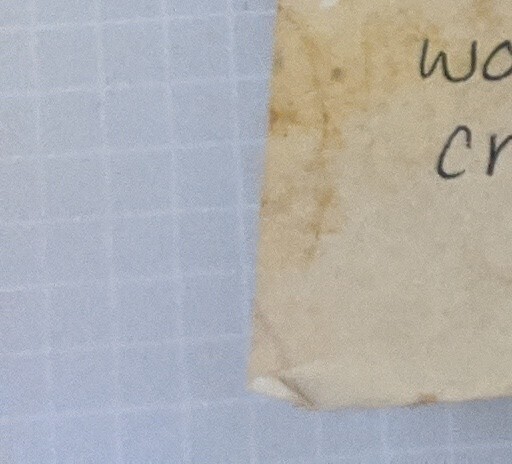 wo
cr